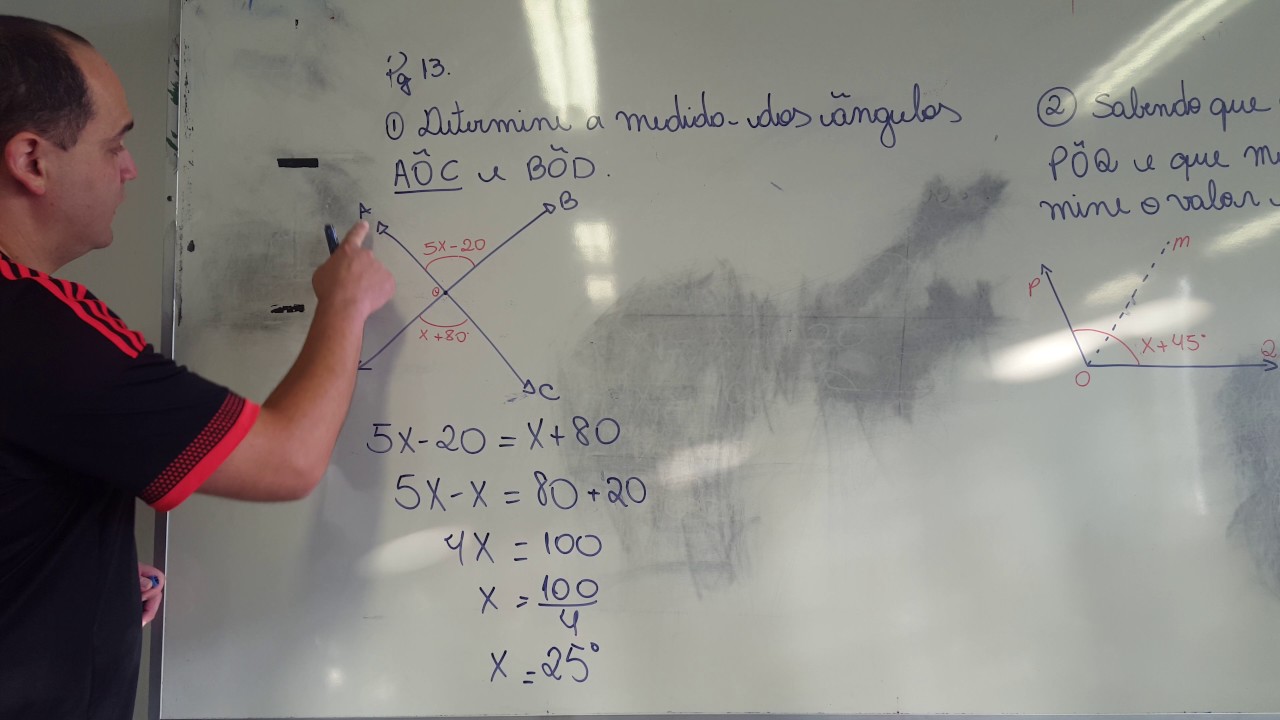 Pg 13.
① Determine a medida dos ângulos
AÔC e BÔD.
A
B
5x-20
O
x+80°
C
5x-20 = x+80
5x-x = 80+20
4x = 100
x = 100/4
x = 25°
② Sabendo que
PÔQ e que
mine o valor
M
P
x+45°
O
Q